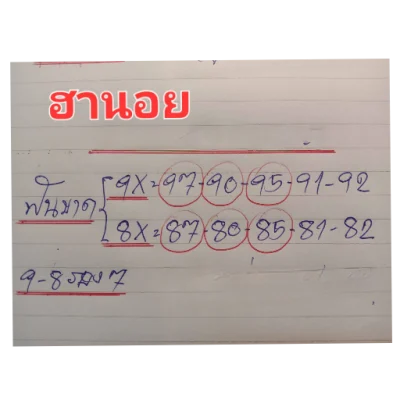 ฮานอย
ฟันขาด { 9X = 97-90-95-91-92
8X = 87-80-85-81-82
9-8 รอง 7